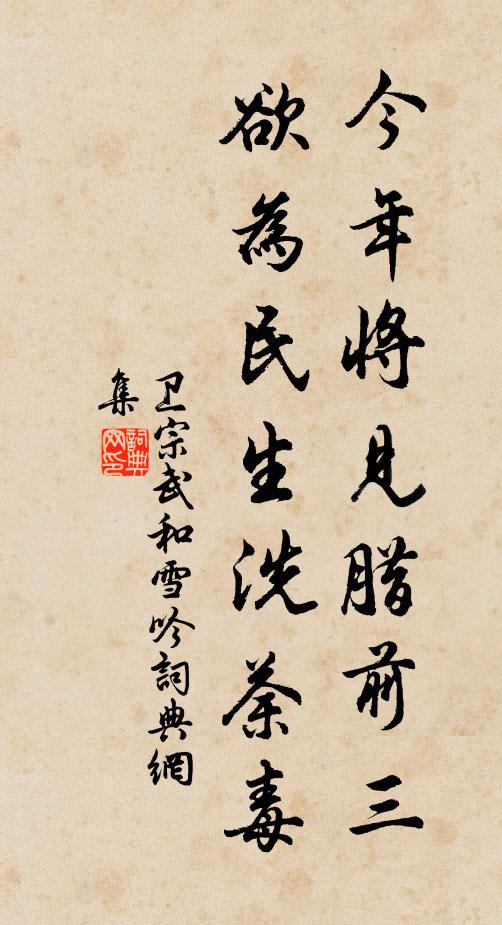 今年將見腊前三
欲為民生洗荼毒
卫宗武和雪吟詞典網
集
詞典
网印